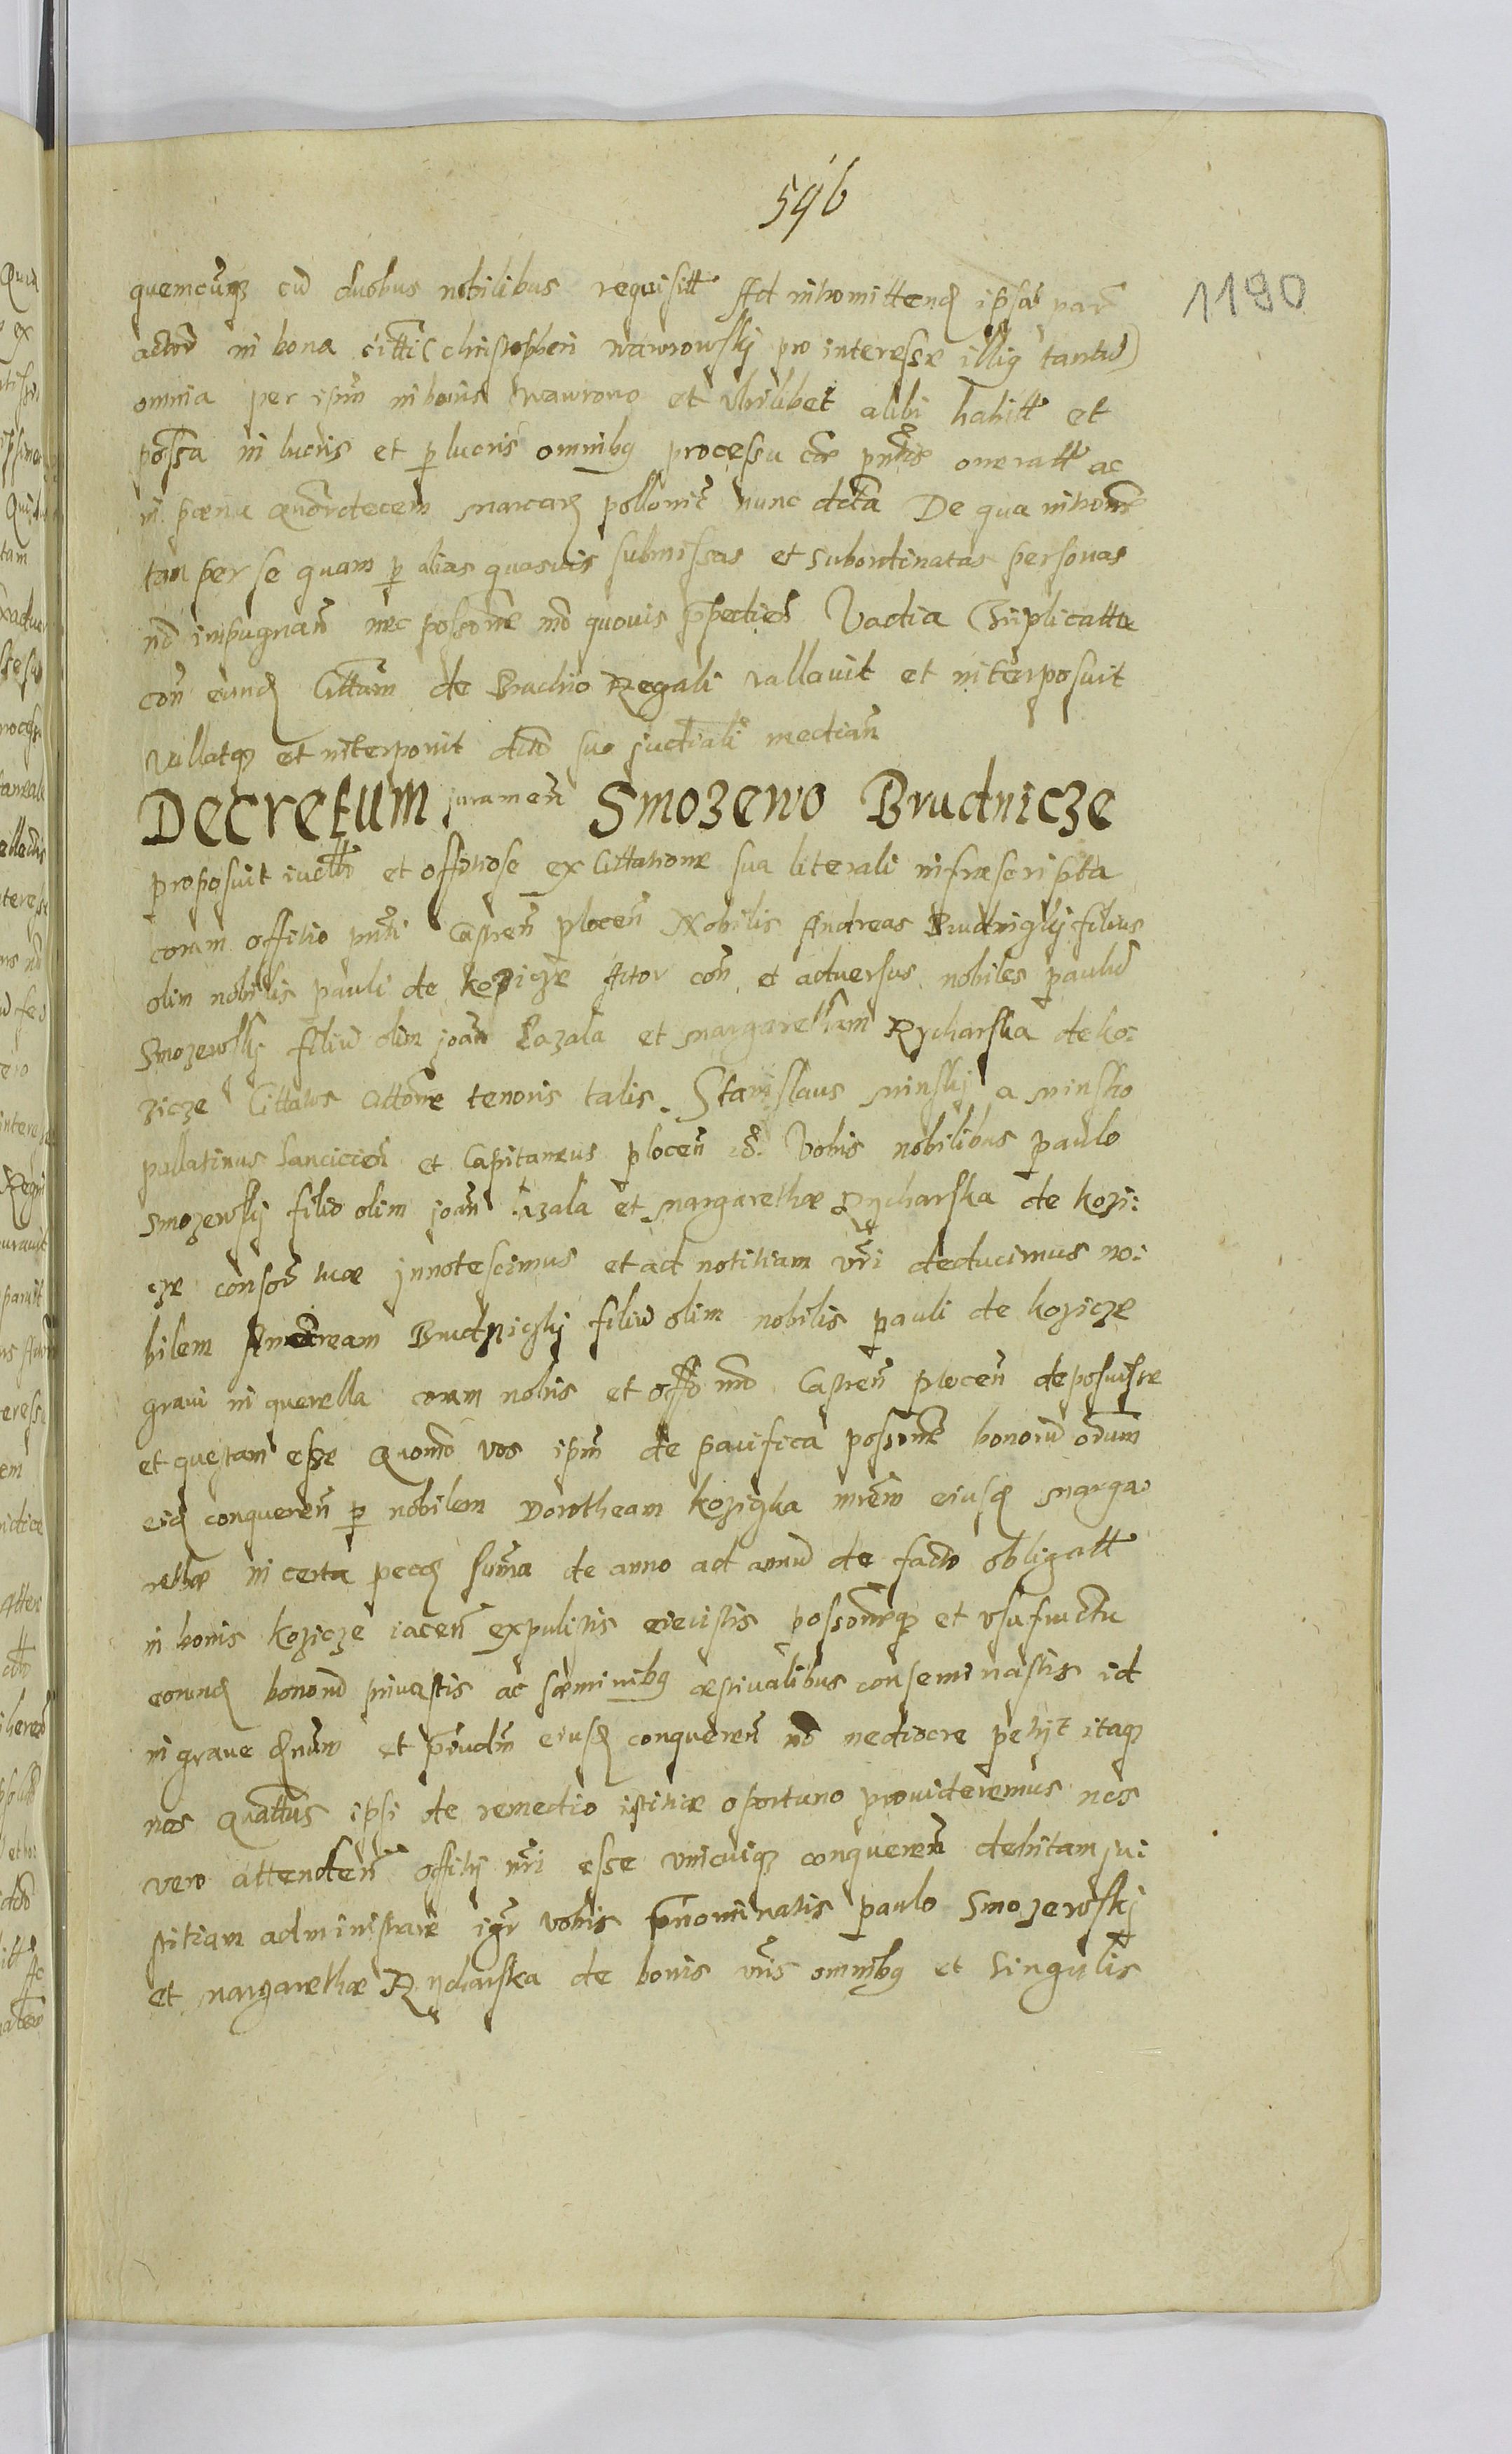 596
1190
quemcunq3 cũ duobus nobilibus requisitt Ad intromittend ipsã par
actorẽ in bona citti (christopheri wawrowskj pro interesse illig tantũ)
omnia per ipm in bonis wawrowo et ubilibet alibi habitt et
possa in lucris et p lucris omnibg processu coe pntis oneratt ac
in pœna quordecem marcarz pollonic nunc dcta De qua introm
tan per se quam p alias quasuis submissas et subordinatas personas
nõ impugnan nec possone mõ quouis ppedien Vadia Triplicatta
con eund Cittam de Brachio Regali vallauit et interposuit
Vallatq3 et interponit dcto suo judiciali median
Decretum juramen Smozewo Brudnicze
proposuit iudtt et offitiose ex Cittatione sua literali infrascripta
coram offitio pnti Castren plocen Nobilis Andreas Brudniczkj filius
olim nobilis pauli de kozicze Actor con et aduersus nobiles paulũ
Smozewskj filiũ olim joan Lazala et margaretham Rycharska de ko:
zicze Cittatos Cittõne tenoris talis. Stanislaus minskj a minsko
pallatinus Lancicien et Capitaneus plocen &. Vobis nobilibus paulo
smozewskj filio olim joan Lazala et margarethæ Rycharska de kozi:
cze consor tuæ jnnotescimus et ad notitiam vri deducimus no:
bilem Andream Brudniczkj filiũ olim nobilis pauli de kozicze
graui in querella coram nobis et offo nro Castren plocen deposuisse
et questam esse Quomõ vos ipm de pacifica possone bonorũ oium
eid conqueren p nobilem Dorotheam kozicka mrem eiusd marga:
rethæ in certa pecc summa de anno ad annũ de facto obligatt
in bonis kozicze iacen expulistis eiecistis possoneq3 et vsufructu
eorund bonorũ priuastis ac sæminibg æstiualibus conseminastis id
in graue dnum et priudm eiusd conqueren nõ mediocre petijt itaq3
nos Quattus ipsi de remedio istitiæ oportuno prouideremus nos
vero attenden offitij nri esse vnicuiq3 conqueren debitam jui
stitiam administrare igr vobis prnominatis paulo Smozewskj
et margarethæ Rycharska de bonis vris omnibg et singulis